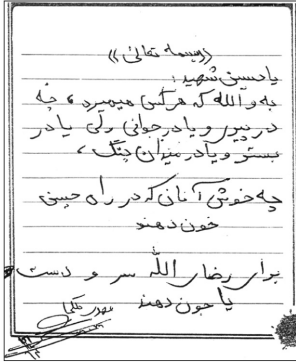 «بسمه تعالی»
یا حسین شهید:
به و آلله که هر کس میمیرد، چه
در پیری و یا در جوانی ولی یا در
بستر و یا در میزان جنگ،
چه خوش آنان که در راه حسین
خون دهند
برای رضای الله سر و دست
یا جون دهند